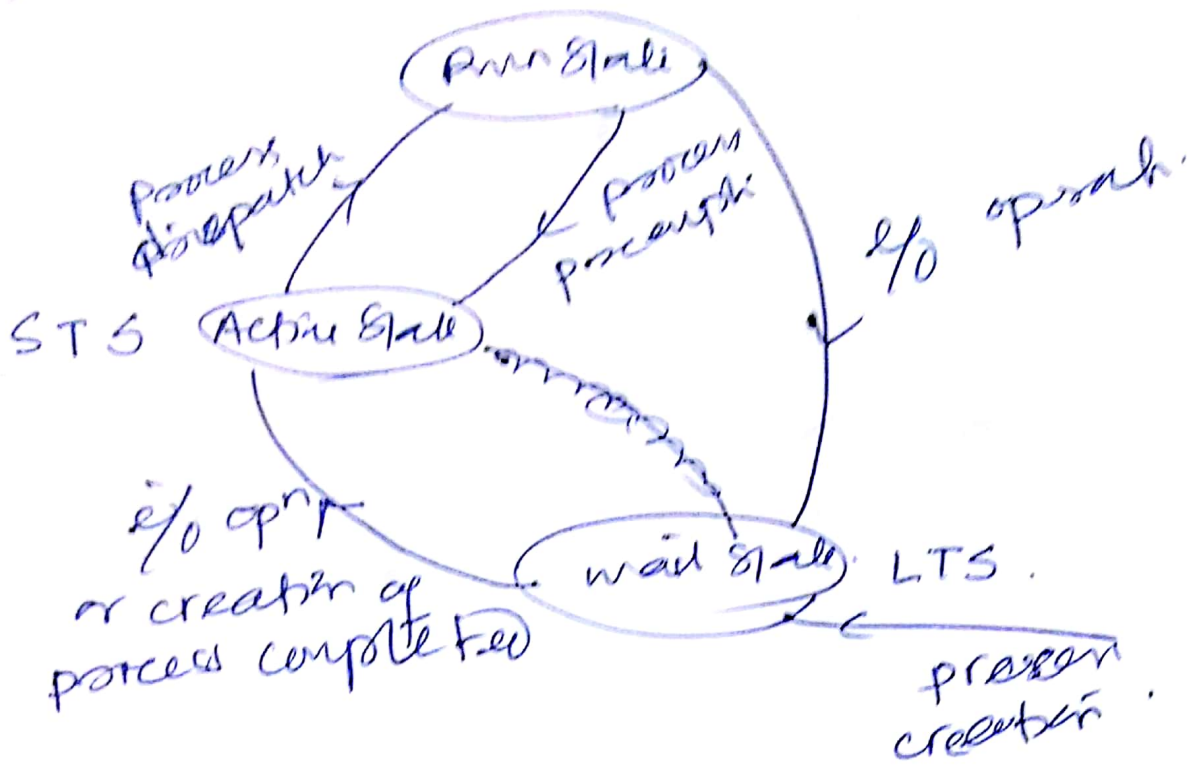 Run State
process
dispatch
process
preempti
i/o operati.
STS
Active State
i/o opn
or creation of
process completed
wait State
LTS.
process
creation.